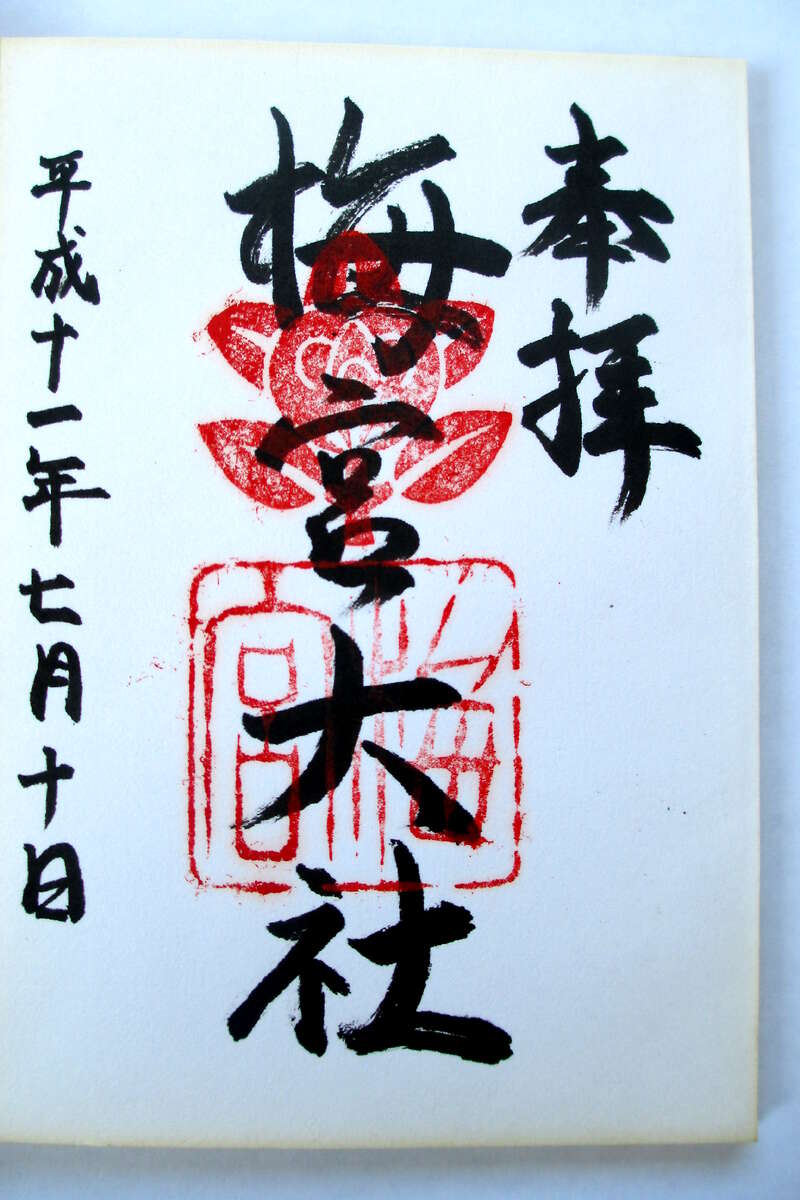 奉拝
梅宮大社
梅宮
平成十一年七月十日